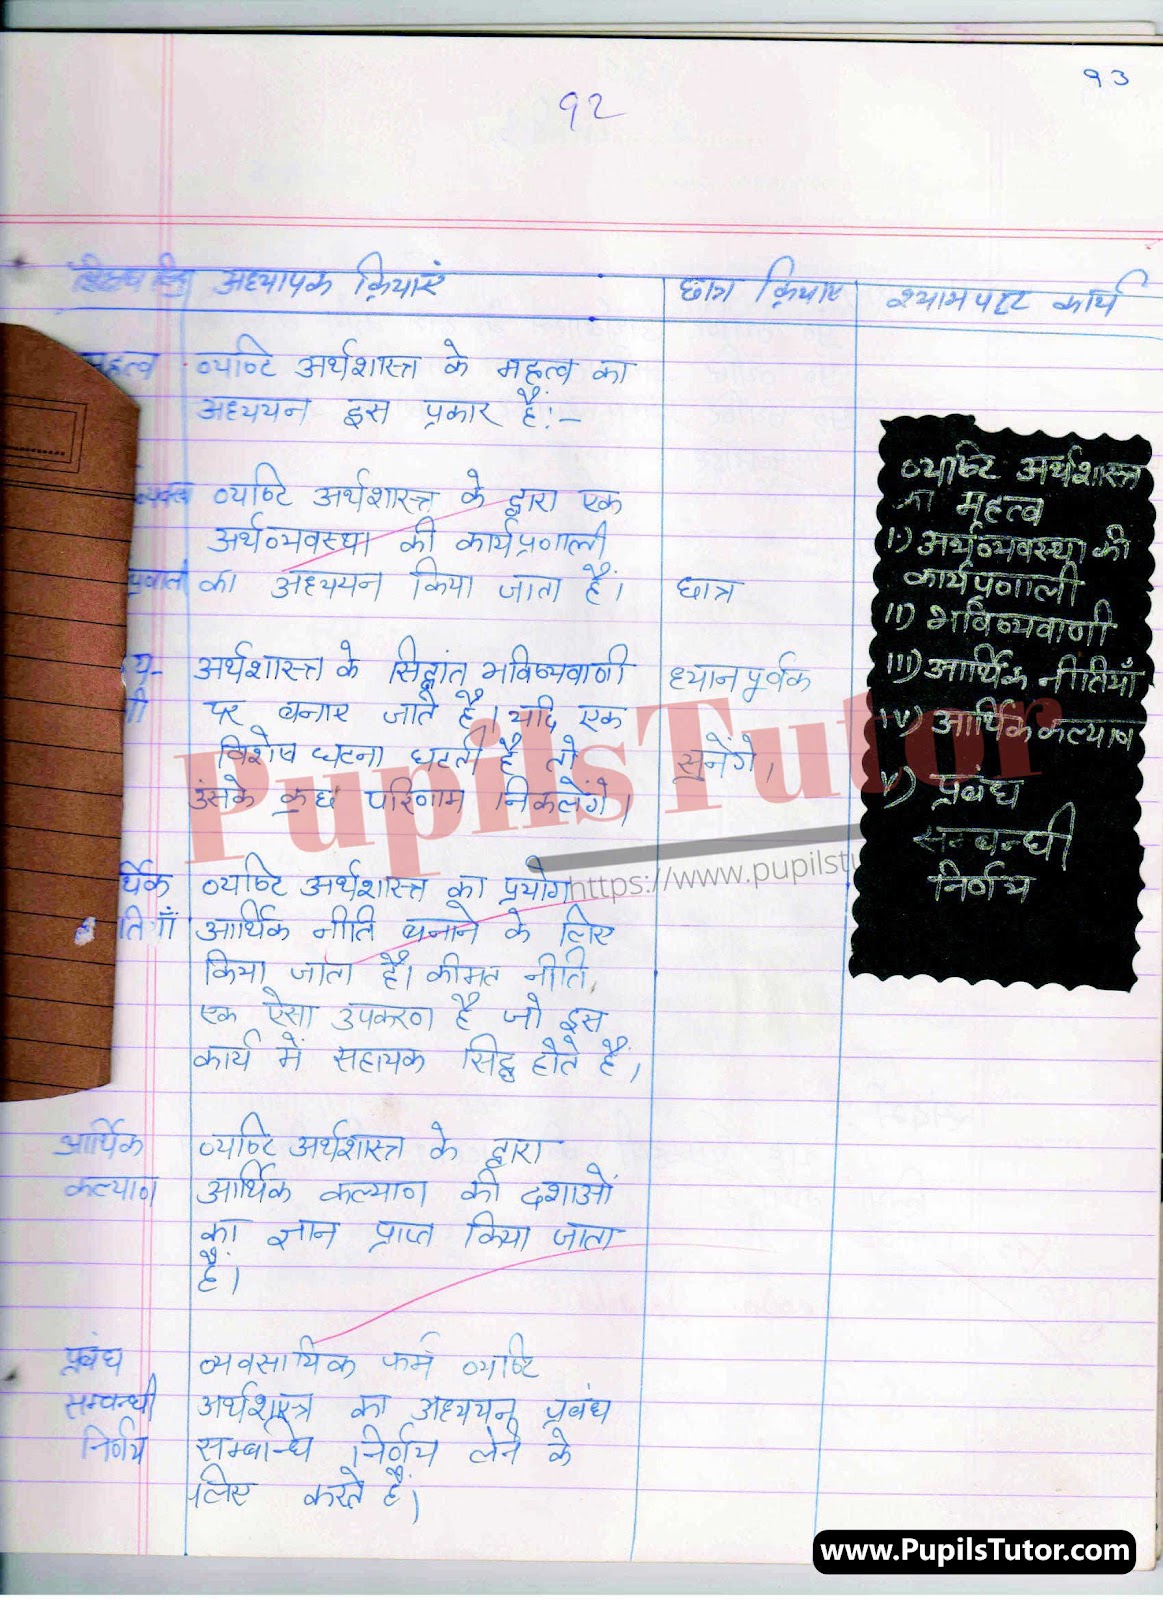 १३
१२
अध्यापक क्रियाएं
छात्र क्रियाएं
श्यामपट्ट कार्य
व्यष्टि अर्थशास्त्र के महत्व का
अध्ययन इस प्रकार है:-
व्यष्टि अर्थशास्त्र के द्वारा एक
अर्थव्यवस्था की कार्यप्रणाली
का अध्ययन किया जाता है।
अर्थशास्त्र के सिद्धांत भविष्यवाणी
पर बनाए जाते है। यदि एक
विशेष घटना घटती है तो
उसके कुछ परिणाम निकलेंगे।
र्थिक
तियाँ
व्यष्टि अर्थशास्त्र का प्रयोग
आर्थिक नीति बनाने के लिए
किया जाता है। कीमत नीति
एक ऐसा उपकरण है जो इस
कार्य में सहायक सिद्ध होते है।
आर्थिक
कल्याण
व्यष्टि अर्थशास्त्र के द्वारा
आर्थिक कल्याण की दशाओं
का ज्ञान प्राप्त किया जाता
है।
प्रबंध
सम्बन्धी
निर्णय
व्यवसायिक फर्म व्यष्टि
अर्थशास्त्र का अध्ययन प्रबंध
सम्बन्धि निर्णय लेने के
लिए करते है।
छात्र
ध्यानपूर्वक
सुनेंगे।
व्यष्टि अर्थशास्त्र
का महत्व
I) अर्थव्यवस्था की
कार्यप्रणाली
II) भविष्यवाणी
III) आर्थिक नीतियाँ
IV) आर्थिक कल्याण
V) प्रबंध
सम्बन्धी
निर्णय
PupilsTutor
https://www.pupilstu
www.PupilsTutor.com